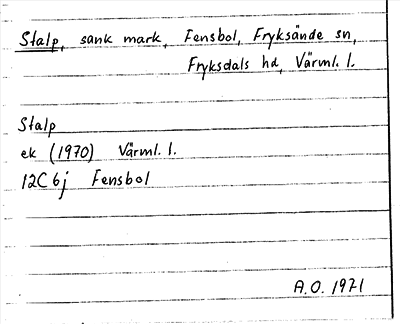 Stalp, sank mark, Fensbol, Fryksände sn,
Fryksdals hd, Värml. l.
Stalp
ek (1970) Värml. l.
12C 6j Fensbol
A.O. 1971